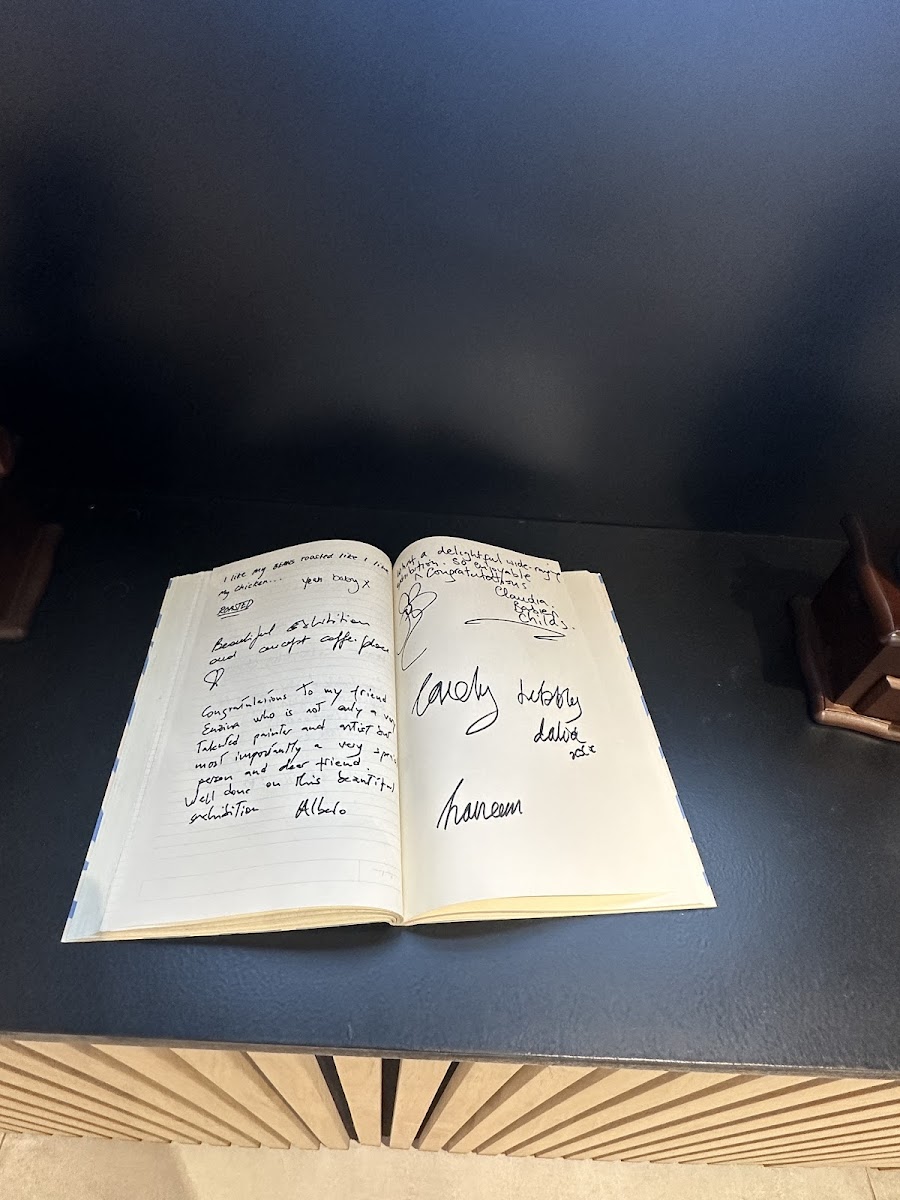 I like my BEANS roasted like I like
my chicken... yeah baby x
ROASTED
Beautiful exhibition
and concept coffee place
Congratulations to my friend
who is not only a very
talented painter and artist but
most importantly a very special
person and dear friend.
Well done on this beautiful
exhibition
What a delightful wide-rang
exhibition. So enjoyable
Congratulations
Claudia.
Childs.
Lovely bubbly
haneem